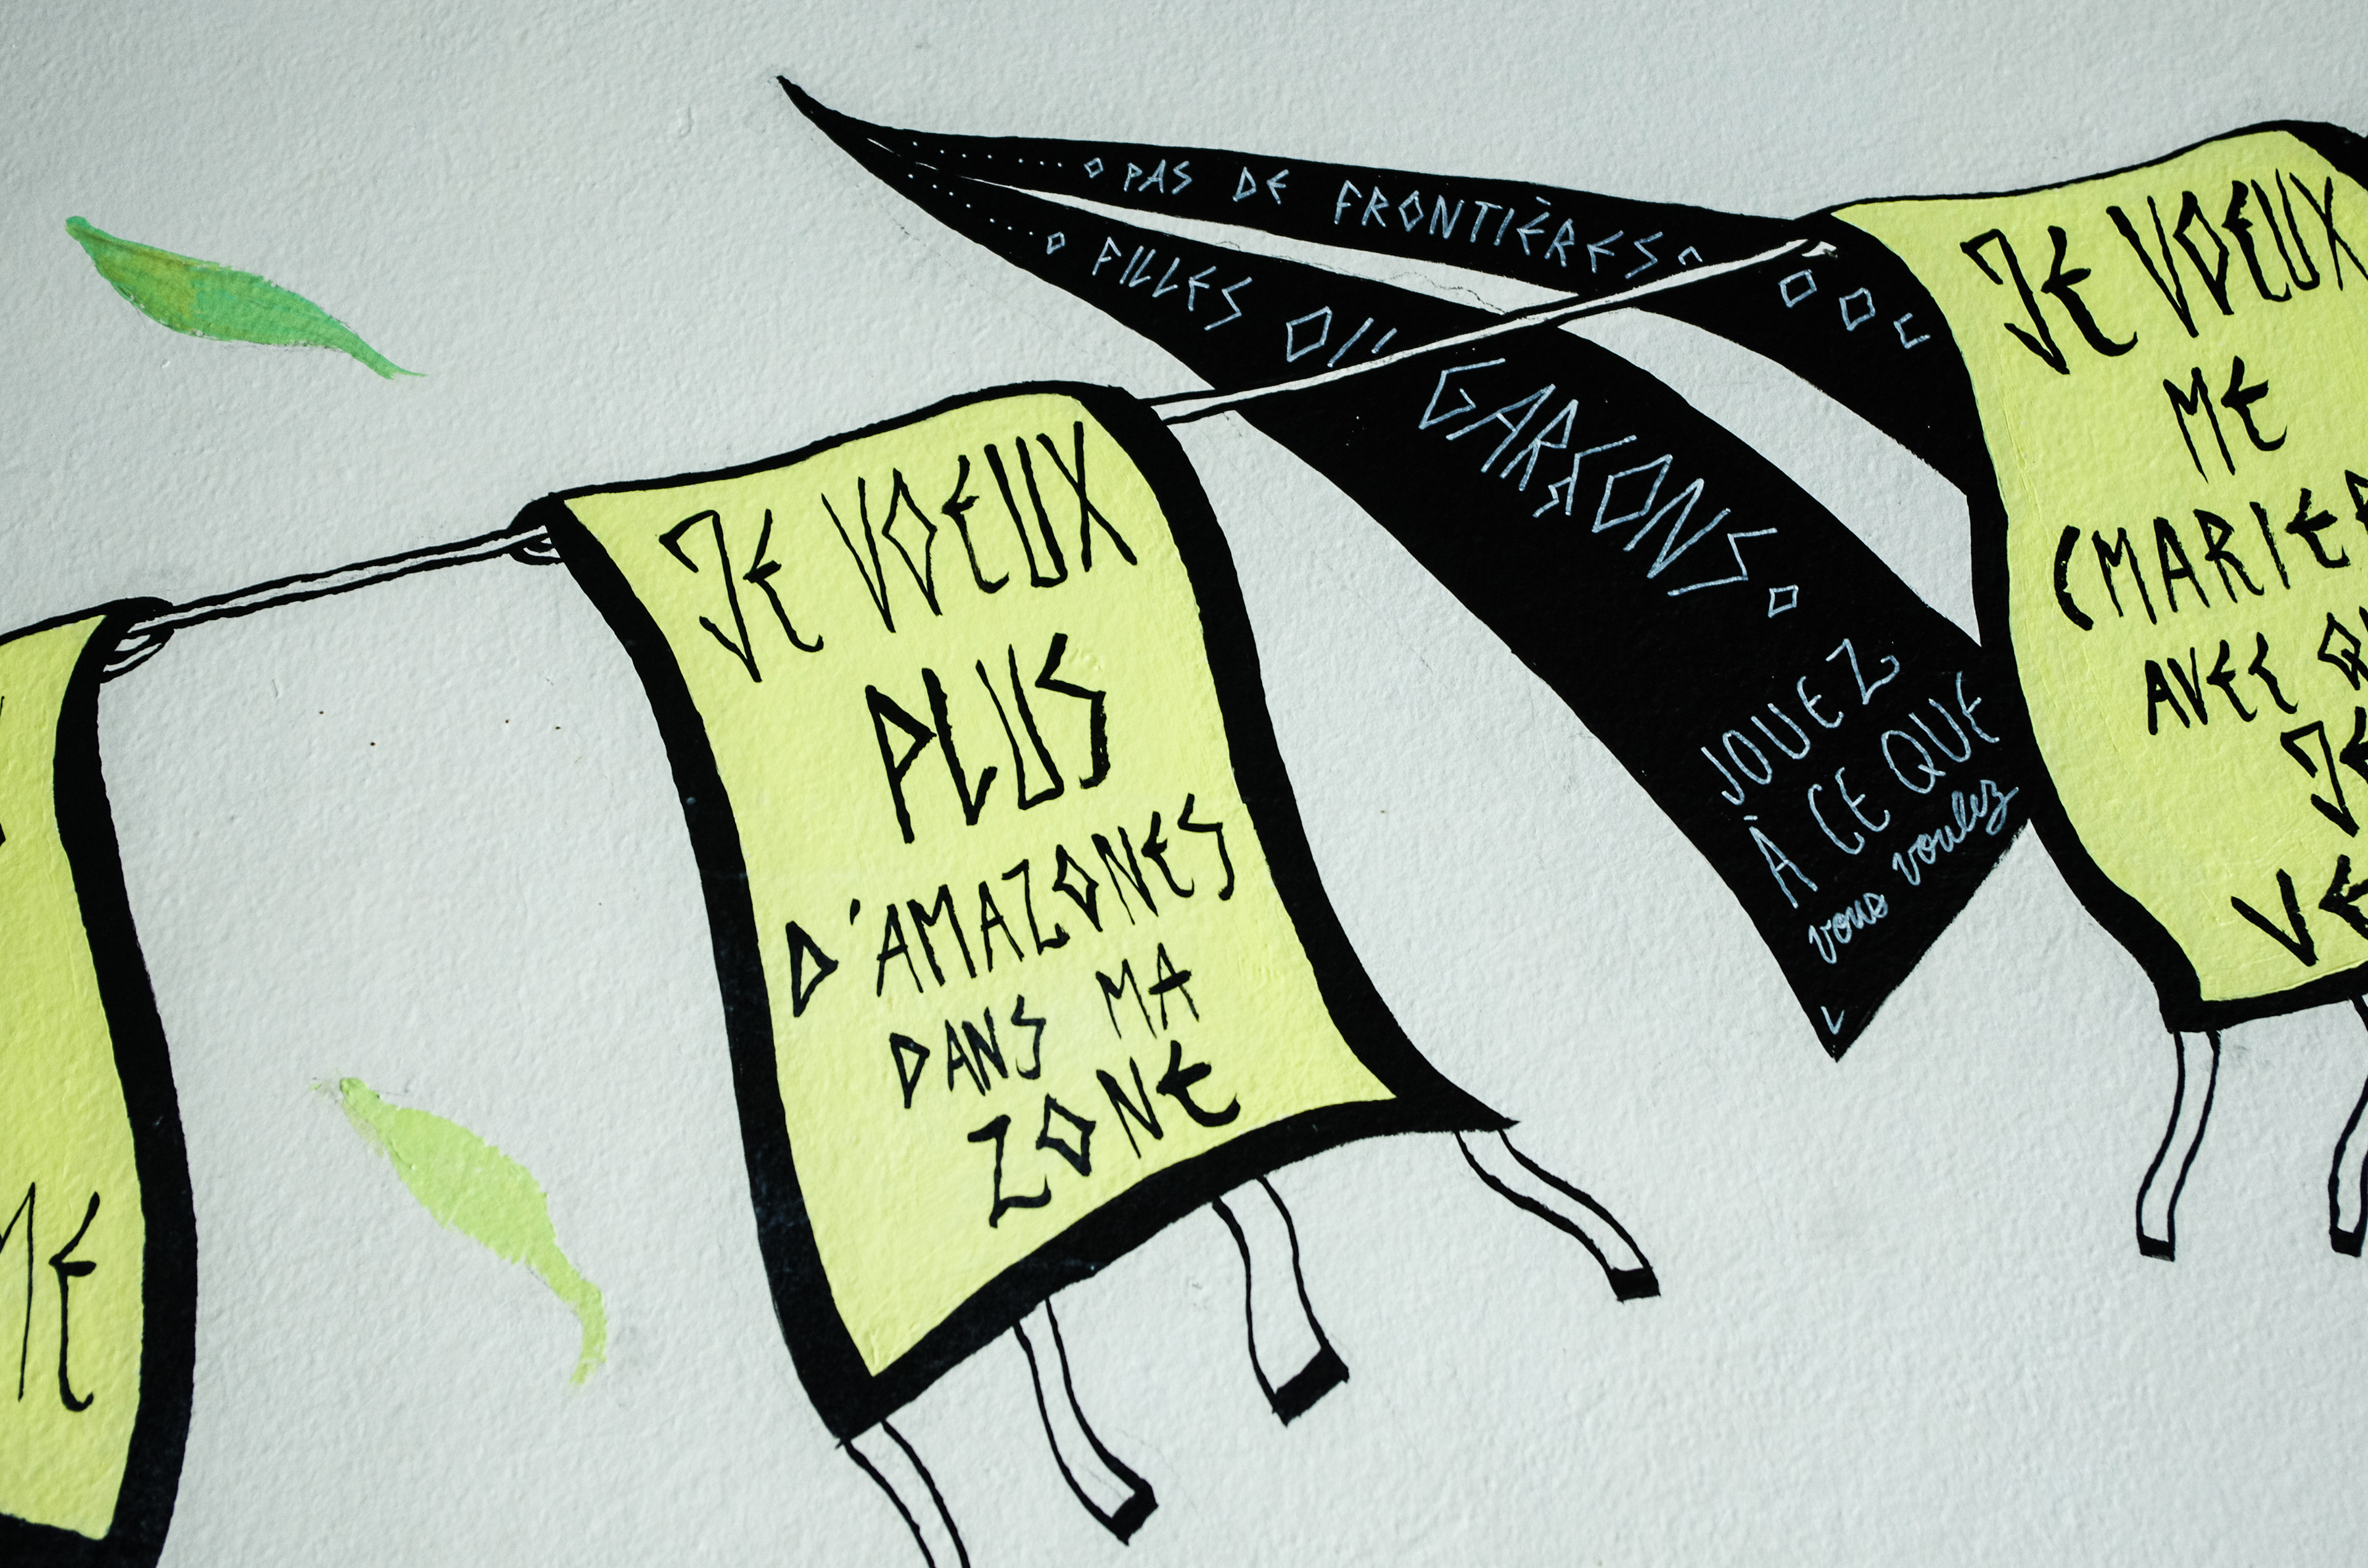 PAS DE FRONTIÈRES
FILLES OU GARÇONS.
JOUEZ
À CE QUE
vous voulez
JE VOEUX
PLUS
D'AMAZONES
DANS MA
ZONE
JE VOEUX
ME
(MARIER
AVEC
JE
ME